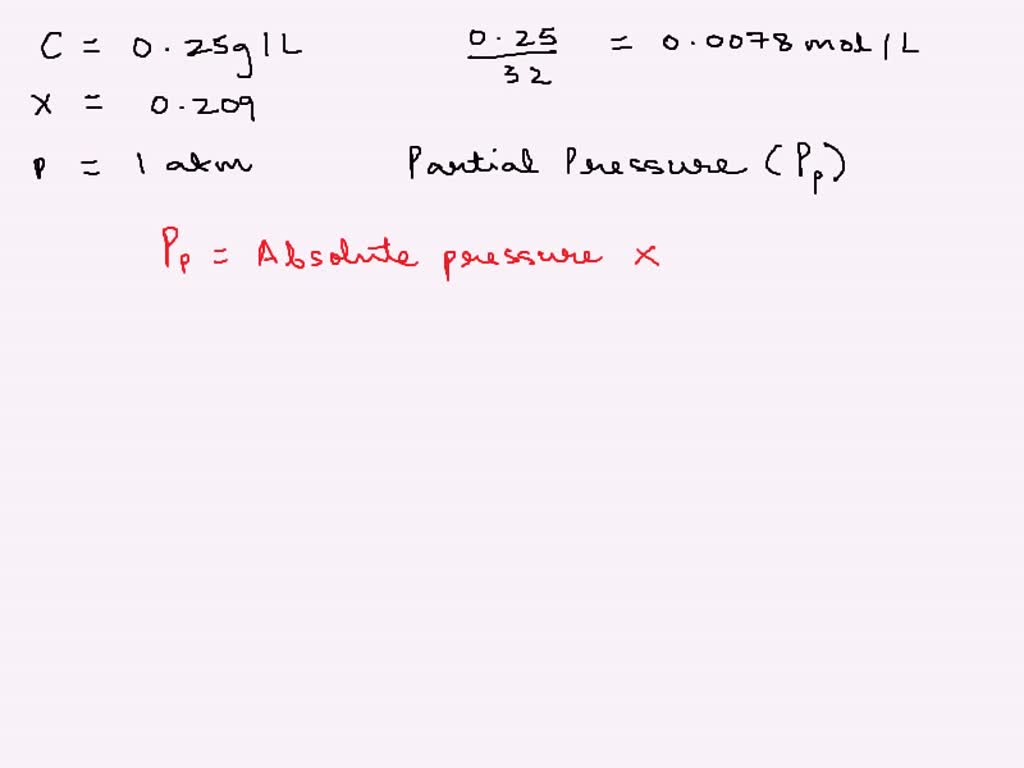 C = 0.25g/L 0.25/32 = 0.0078 mol/L
x = 0.209
P = 1 atm Partial Pressure (Pp)
Pp = Absolute pressure ×